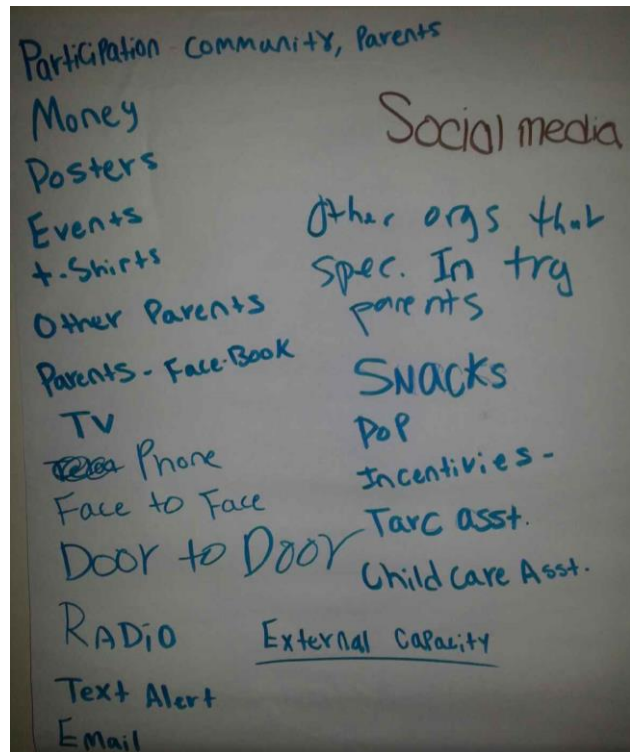 Participation community, Parents
Money
Posters
Events
t-Shirts
Other Parents
Parents - Face-Book
TV
Phone
Face to Face
Door to Door
RADiO
Text Alert
Email
Social media
Other orgs that
spec. In trg
parents
SNACKS
PoP
Incentivies -
Tarc asst.
Child care Asst.
External Capacity